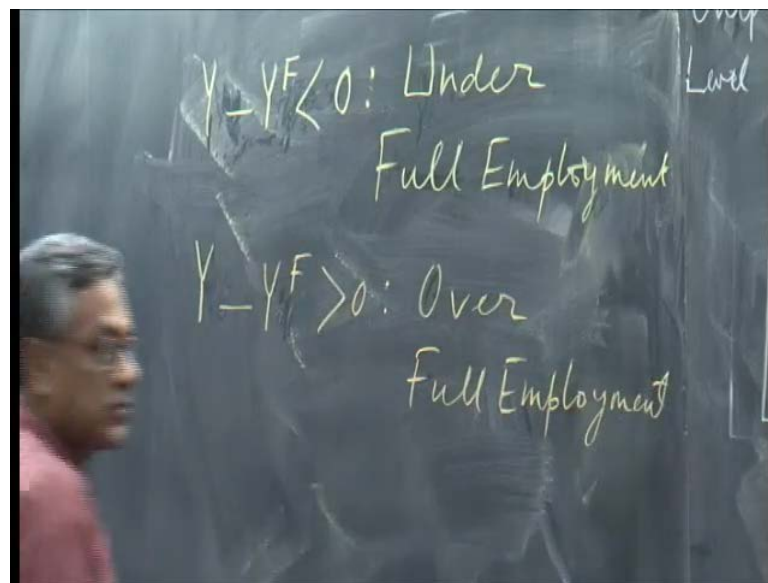 Y - Y^F < 0 : Under
Full Employment
Y - Y^F > 0 : Over
Full Employment
Level